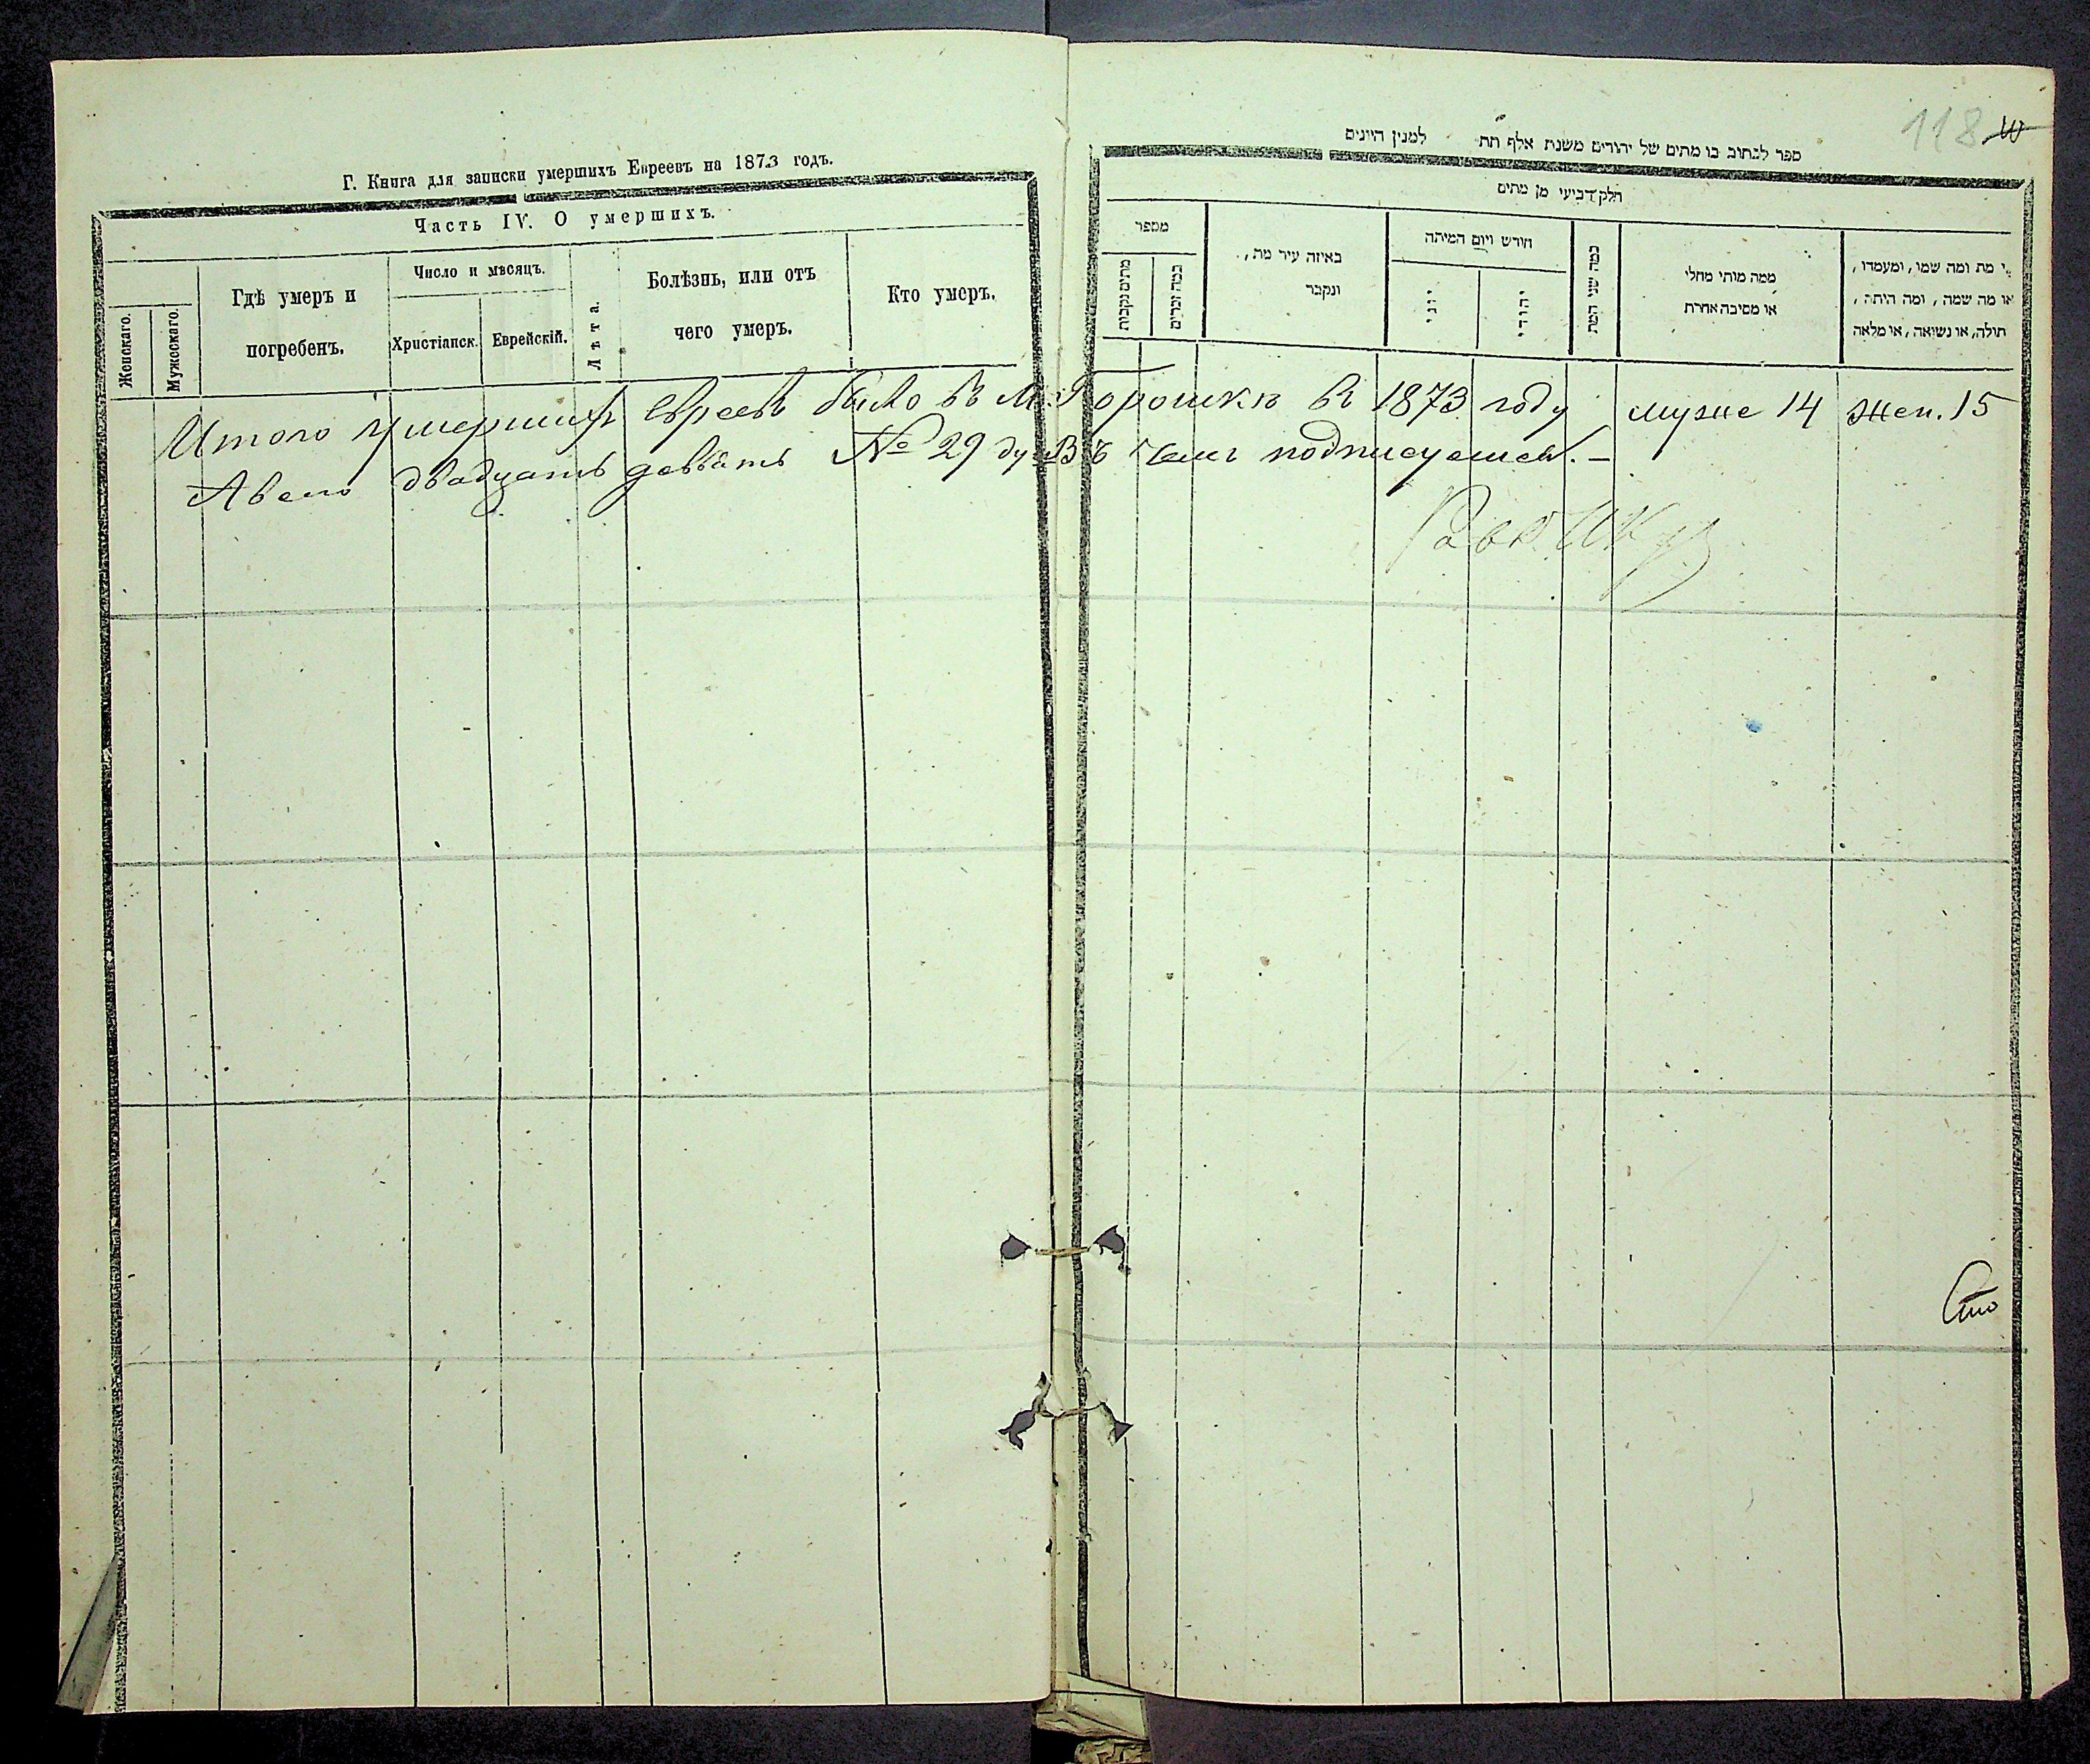 Г. Книга для записки умершихъ Евреевъ на 1873 годъ.
Часть IV. О умершихъ.
Женскаго.
Мужескаго.
Гдѣ умеръ и
погребенъ.
Число и мѣсяцъ.
Христіанск.
Еврейскій.
Лѣта.
Болѣзнь, или отъ
чего умеръ.
Кто умеръ.
118
ספר לכתוב בו מתים של יהודים משנת אלף תת למנין היונים
חלק רביעי מן מתים
מספר
מתים נקבות
כמה זכרים
באיזה עיר מת,
ונקבר
חודש ויום המיתה
יוני
יהודי
כמה שני המת
ממה מותי מחלי
או מסיבה אחרת
מי מת ומה שמו, ומעמדו,
או מה שמה, ומה היתה,
תולה, או נשיאה, או מלאה
Итого умершихъ евреевъ было въ М. Горошкѣ въ 1873 году мужс 14 жен. 15
А всего двадцать девьять № 29 ду. Въ чемъ подписуемся. –
Сто